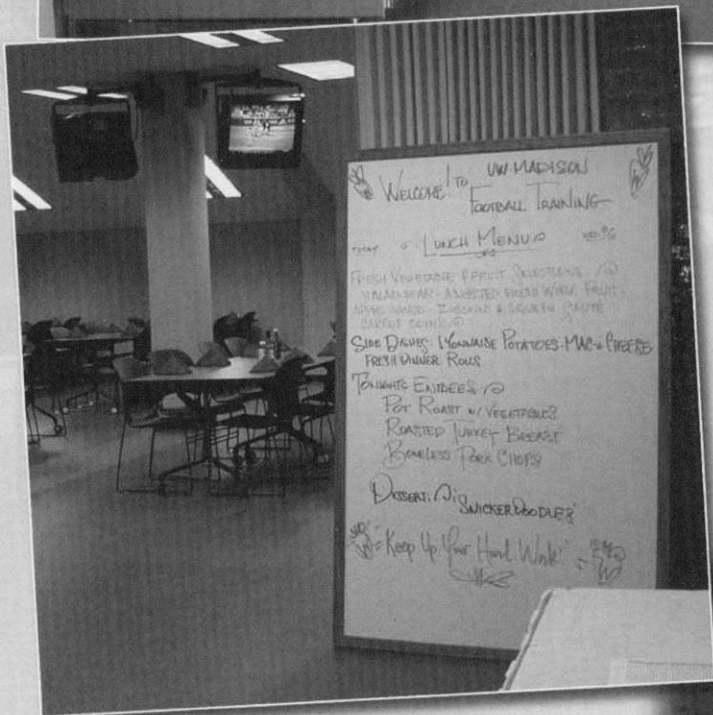 UW-MADISON
WELCOME! TO
FOOTBALL TRAINING
TODAY LUNCH MENU
FRESH VEGETABLE & FRUIT SELECTIONS:
SALAD BAR - ASSORTED FRESH WHOLE FRUIT -
ZUCCHINI & SQUASH SAUTE
CARROT COINS
SIDE DISHES: LYONNAISE POTATOES - MAC & CHEESE
FRESH DINNER ROLLS
TONIGHTS ENTREES
POT ROAST W/ VEGETABLES
ROASTED TURKEY BREAST
BONELESS PORK CHOPS
DESSERT: "SNICKERDOODLES"
"Keep Up Your Hard Work!"